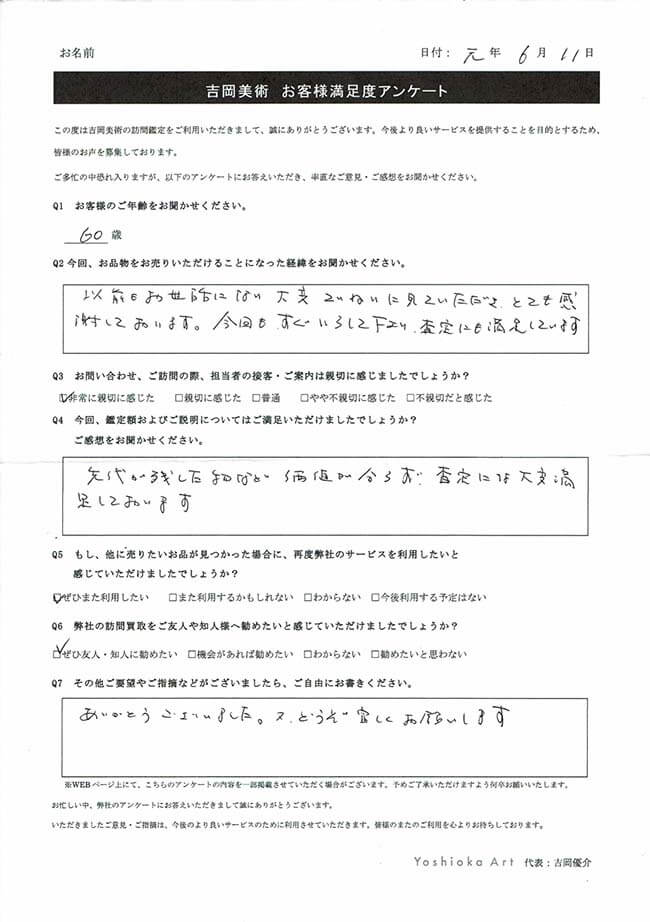 お名前 日付: 元 年 6 月 11 日
吉岡美術 お客様満足度アンケート
この度は吉岡美術の訪問鑑定をご利用いただきまして、誠にありがとうございます。今後より良いサービスを提供することを目的とするため、
皆様のお声を募集しております。
ご多忙の中恐れ入りますが、以下のアンケートにお答えいただき、率直なご意見・ご感想をお聞かせください。
Q1 お客様のご年齢をお聞かせください。
60 歳
Q2 今回、お品物をお売りいただけることになった経緯をお聞かせください。
以前もお世話になり大変ていねいに見ていただき、とても感
謝しております。今回も、すぐいらして下さり、査定にも満足しています
Q3 お問い合わせ、ご訪問の際、担当者の接客・ご案内は親切に感じましたでしょうか?
☑非常に親切に感じた □親切に感じた □普通 □やや不親切に感じた □不親切だと感じた
Q4 今回、鑑定額およびご説明についてはご満足いただけましたでしょうか?
ご感想をお聞かせください。
先代が残した物など価値が分らず、査定には大変満
足しております
Q5 もし、他に売りたいお品が見つかった場合に、再度弊社のサービスを利用したいと
感じていただけましたでしょうか?
☑ぜひまた利用したい □また利用するかもしれない □わからない □今後利用する予定はない
Q6 弊社の訪問買取をご友人や知人様へ勧めたいと感じていただけましたでしょうか?
☑ぜひ友人・知人に勧めたい □機会があれば勧めたい □わからない □勧めたいと思わない
Q7 その他ご要望やご指摘などがございましたら、ご自由にお書きください。
ありがとうございました。又、どうぞ宜しくお願いします
※WEBページ上にて、こちらのアンケートの内容を一部掲載させていただく場合がございます。予めご了承いただけますよう何卒お願いいたします。
お忙しい中、弊社のアンケートにお答えいただきまして誠にありがとうございます。
いただきましたご意見・ご指摘は、今後のより良いサービスのために利用させていただきます。皆様のまたのご利用を心よりお待ちしております。
Yoshioka Art 代表:吉岡優介